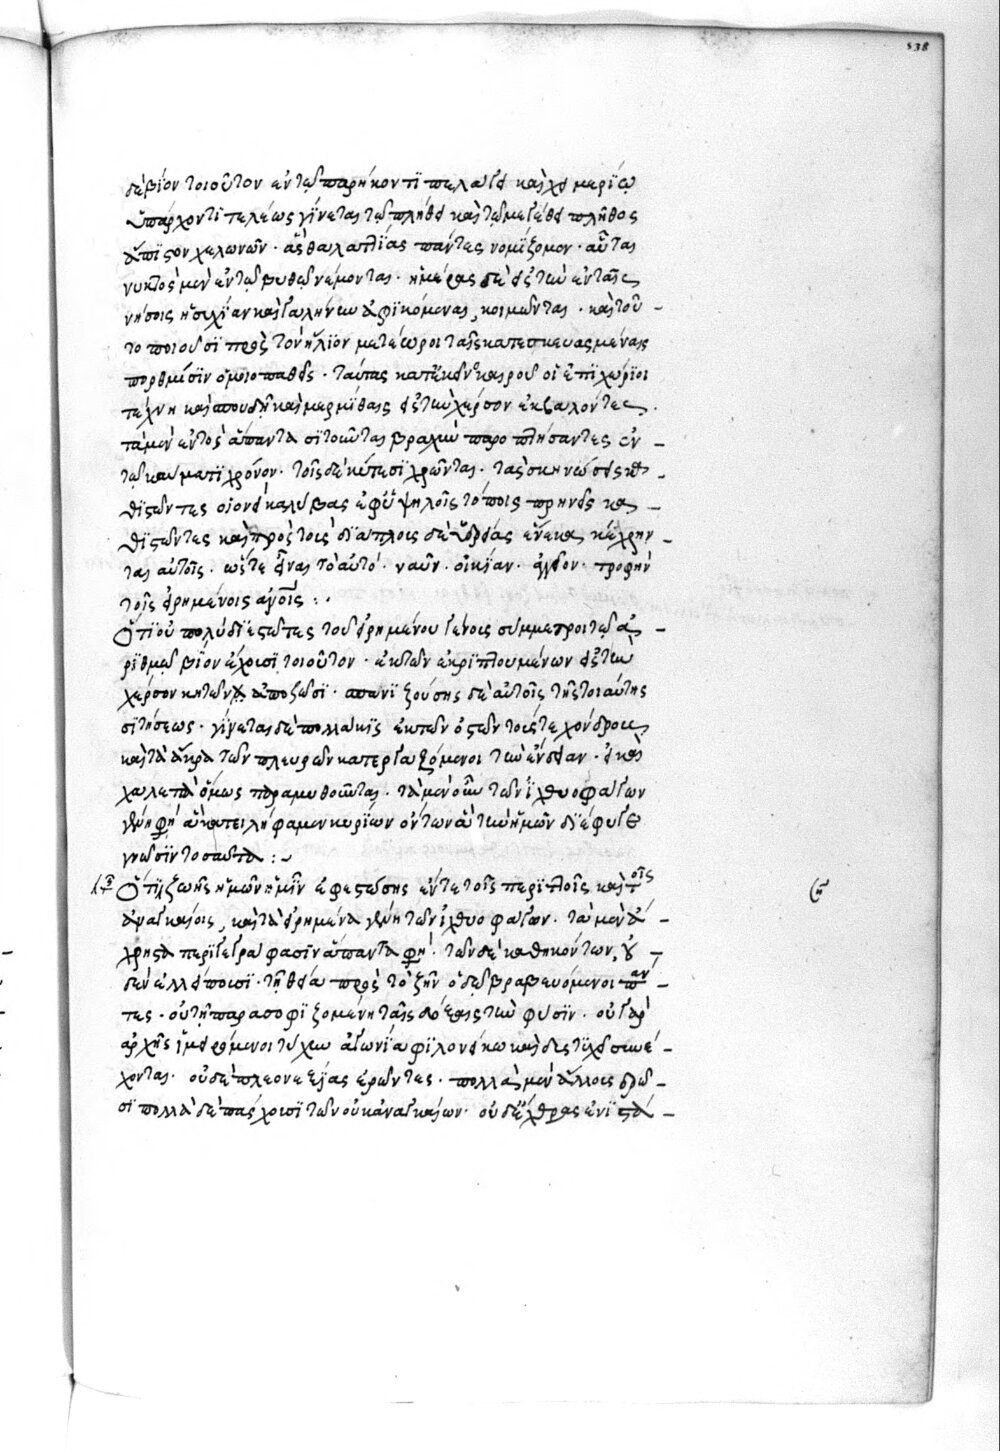 538
δὲ βίον τοιοῦτον ἐν τῷ παρήκοντι πελάγει καὶ χ μερίῳ
ὑπάρχοντι τελέως γίνεται τῷ πλήθει καὶ τῷ μεγέθει πλῆθος
ἄπιστον χελωνῶν· ἃς θαλαττίας πάντες νομίζομεν· αὗται
νυκτὸς μὲν ἐν τῷ βυθῷ νέμονται· ἡμέρας δὲ εἰς τὴν ἐν ταῖς
νήσοις ἡσυχίαν καὶ γαλήνην ἀφικόμεναι, κοιμῶνται· καὶ τοῦ
το ποιοῦσι πρὸς τὸν ἥλιον μετέωροι ταῖς κατεσκευασμέναις
πορθμίσιν ὁμοιοπαθεῖς· ταύτας κατ' ἐκεῖνον καιροῦ οἱ ἐπιχώριοι
τέχνη καὶ σπουδῆ καὶ μερμίθαις εἰς τὴν χέρσον ἐκβαλόντες·
τὰ μὲν ἐντὸς ἅπαντα σιτοῦνται βραχὺ παροπτήσαντες ἐν
τῷ καύματι χρόνον· τοῖς δὲ κύτεσι χρῶνται· τὰς σκηνώσεις κα
θιστῶντες οἱονεὶ καλύβας ἐφ' ὑψηλοῖς τόποις πρηνεῖς κα
θιστῶντες καὶ πρὸς τοὺς διάπλους δὲ ὑδρείας ἕνεκα κέχρην
ται αὐτοῖς· ὥστε εἶναι τὸ αὐτό· ναῦν· οἰκίαν· ἀγγεῖον· τροφὴν
τοῖς εἰρημένοις ἀνοις:·
Ὅτι οὐ πολὺ διεστῶτες τοῦ εἰρημένου γένους σύμμετροι τῷ ἀ
ριθμῷ βίον ἔχουσι τοιοῦτον· ἐκ τῶν ἐκριπτουμένων εἰς τὴν
χέρσον κητῶν ἀποζῶσι· σπανιζούσης δὲ αὐτοῖς τῆς τοιαύτης
σιτήσεως· γίνεται δὲ πολλάκις ἐκ τῶν ὀστῶν τούς τε χόνδρους
καὶ τὰ ἄκρα τῶν πλευρῶν κατεργαζόμενοι τὴν ἔνδειαν· εἰ καὶ
χαλεπὰ ὅμως παραμυθοῦνται· τὰ μὲν οὖν τῶν ἰχθυοφάγων
γένη φη ἃ κατειλήφαμεν κυρίων ὄντων ἃ τὴν ἡμῶν διέφυγε
γνῶσιν τοσαῦτα:
Ὅτι ζωῆς ἡμῶν ἡμῖν ἐφεστώσης ἔν τε τοῖς περιπλοῖς καὶ τοῖς
ἀναγκαίοις, καὶ τὰ εἰρημένα γένη τῶν ἰχθυοφάγων· τὰ μὲν ἄ
χρηστα περιγεγραφασιν ἅπαντα φη· τῶν δὲ καθηκόντων, οὐ
δὲν ἐλλείπουσι· τῇ θείᾳ πρὸς τὸ ζῆν ὁδῷ βραβευόμενοι παν
τες· οὐ τῇ παρασοφιζομένῃ ταῖς δόξαις τὴν φύσιν· οὐ γὰρ
ἀρχῆς ἱμειρόμενοι τυχεῖν ἀγωνίᾳ φιλονείκῳ καὶ δυστυχεῖ συνέ
χονται· οὐδὲ πλεονεξίας ἐρῶντες· πολλὰ μὲν ἄλλους δρῶ
σι πολλὰ δὲ πάσχουσι τῶν οὐκ ἀναγκαίων· οὐδὲ ἔχθρας ἐνιστά